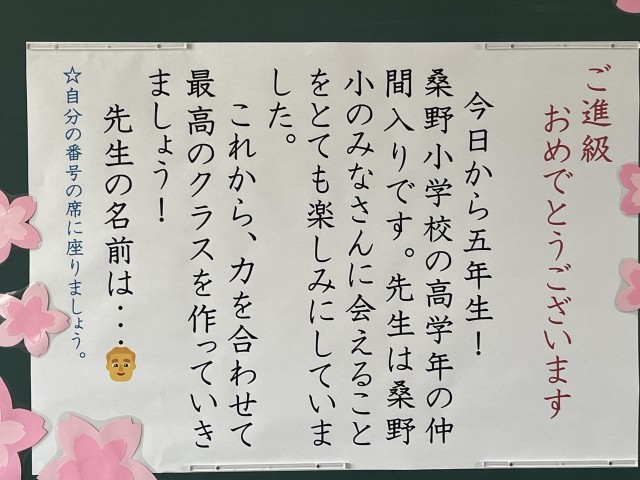 ご進級
おめでとうございます
今日から五年生!
桑野小学校の高学年の仲
間入りです。先生は桑野
小のみなさんに会えること
をとても楽しみにしていま
した。
これから、力を合わせて
最高のクラスを作っていき
ましょう!
先生の名前は・・・
☆自分の番号の席に座りましょう。